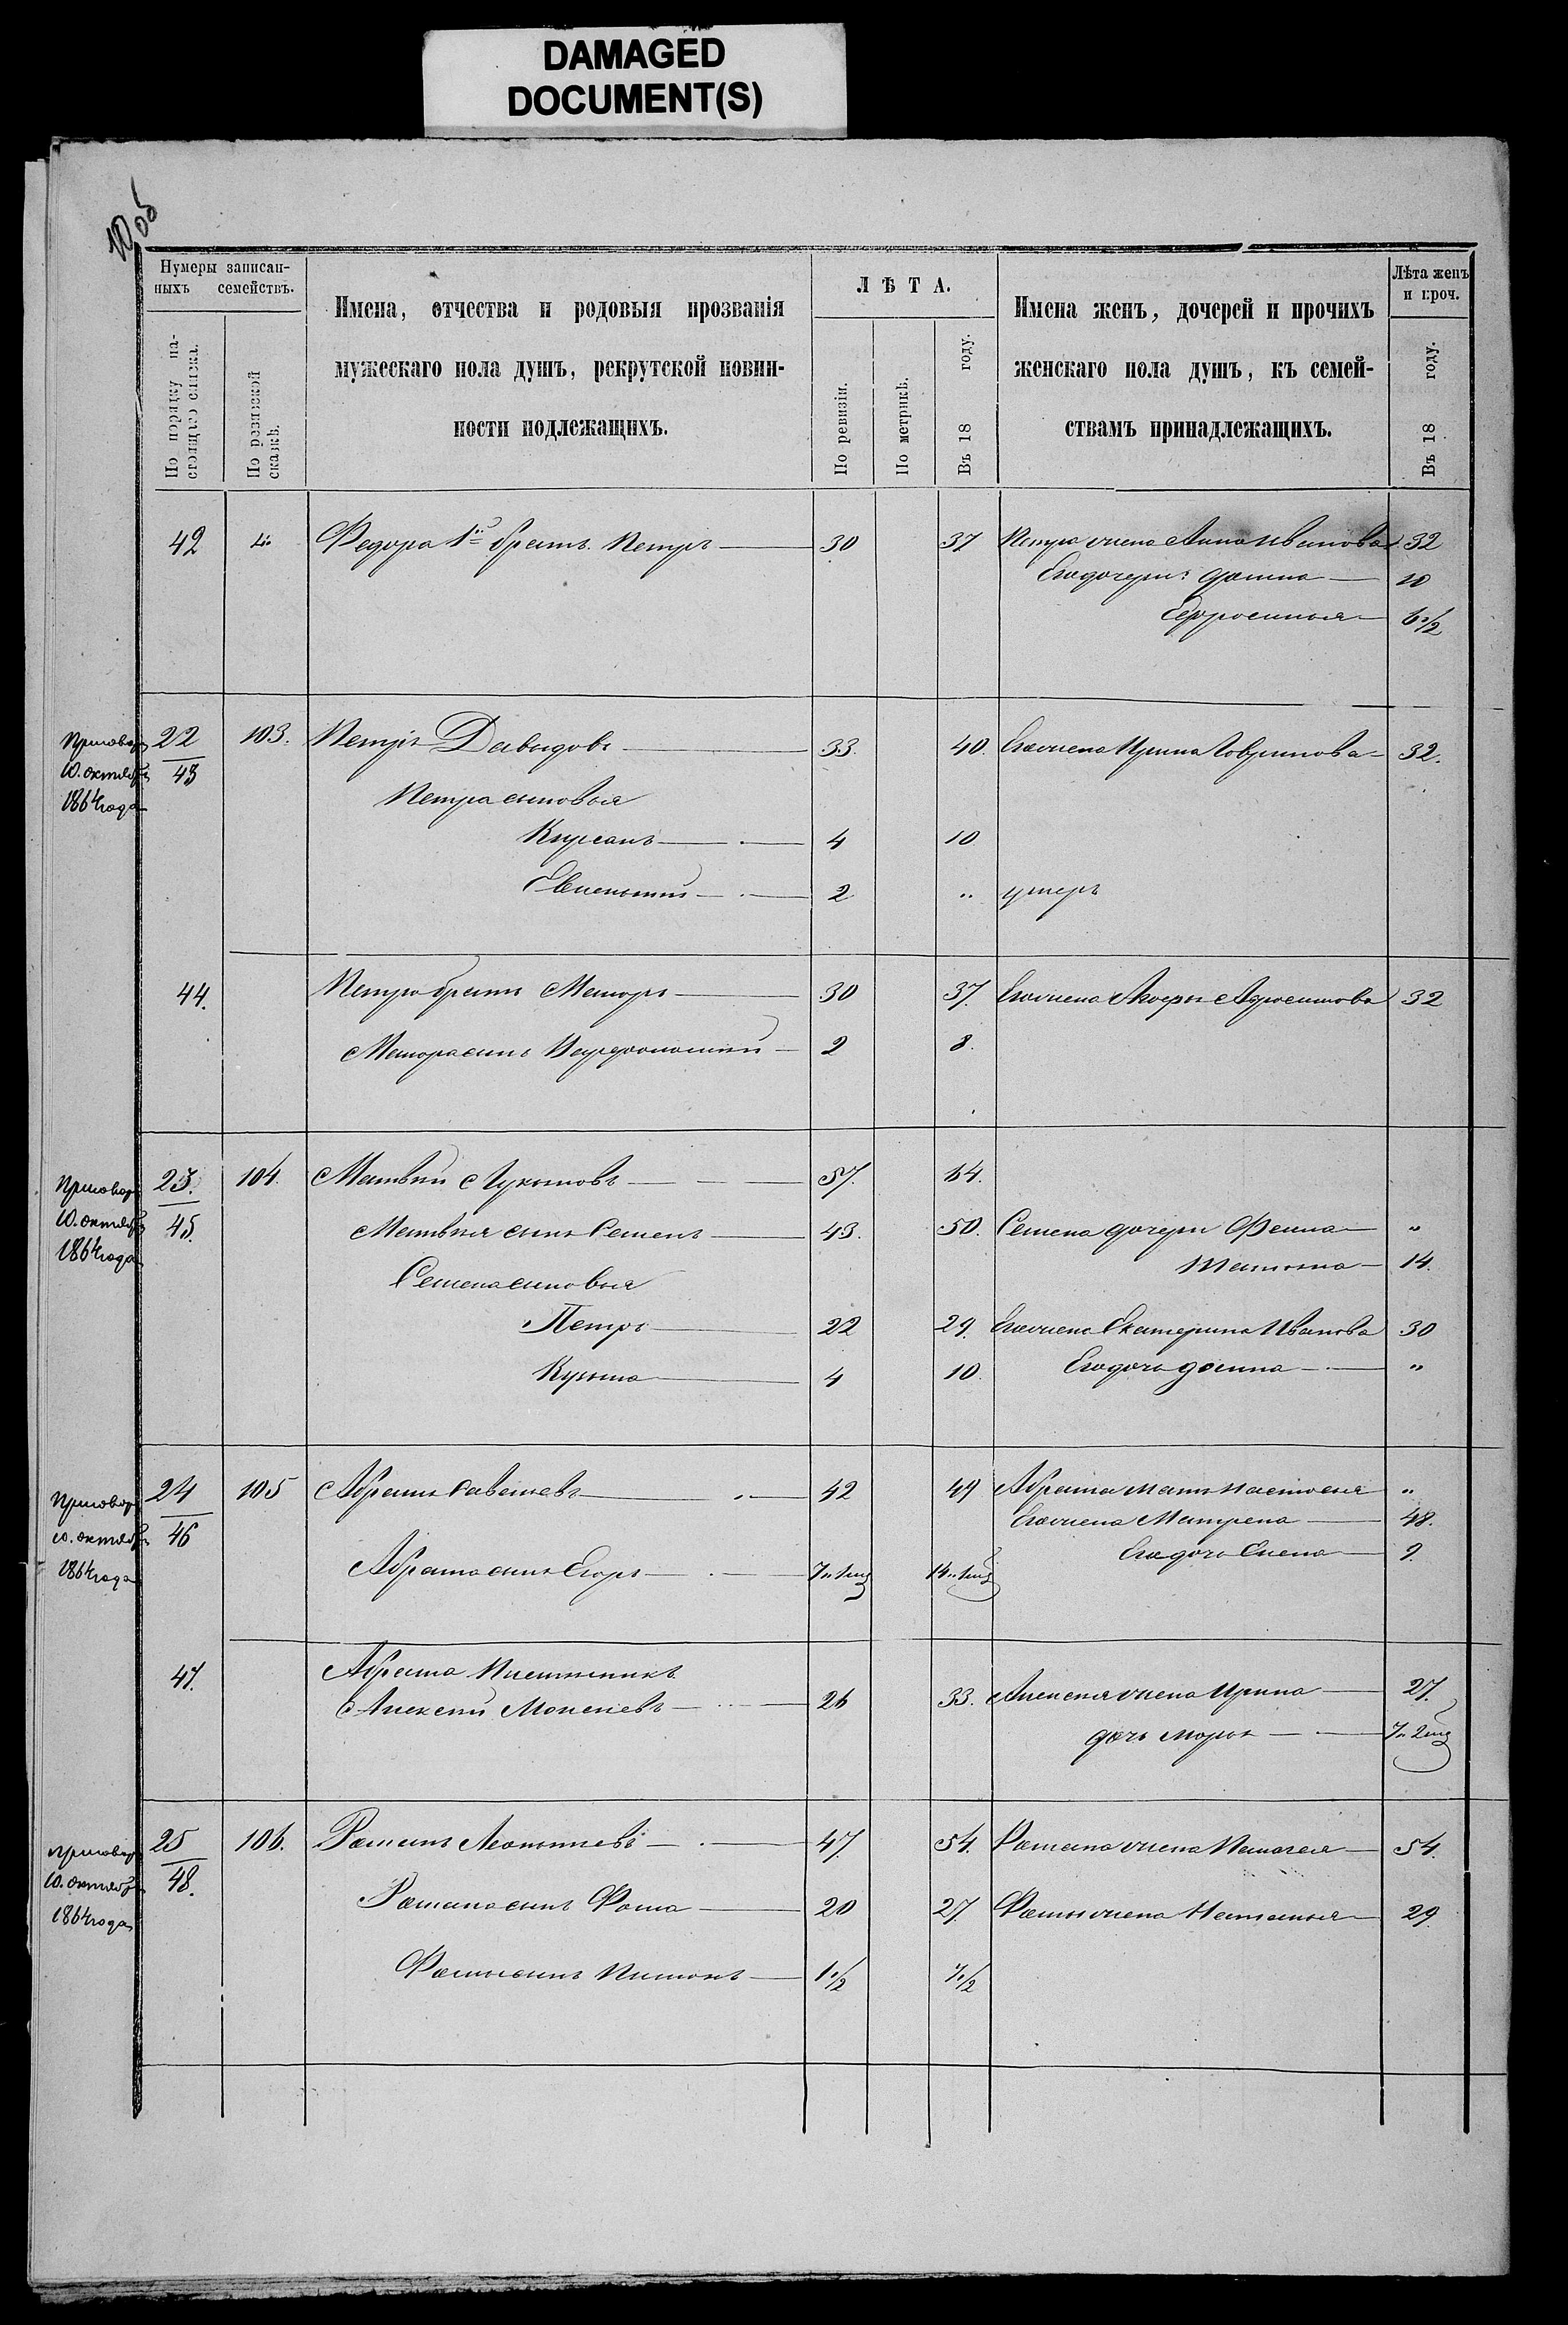 DAMAGED
DOCUMENT(S)
Нумеры записан-
ныхъ семействъ.
По порядку на-
стоящаго списка.
По ревизской
сказкѣ.
Имена, отчества и родовыя прозванія
мужескаго пола душъ, рекрутской повин-
ности подлежащихъ.
ЛѢТА.
По ревизіи.
По метрикѣ.
Въ 18 году.
Имена женъ, дочерей и прочихъ
женскаго пола душъ, къ семей-
ствамъ принадлежащихъ.
Лѣта женъ
и проч.
Въ 18 году.
42 Федора 1й братъ Петръ 30 37 Петра жена Анна Иванова 32
Его дочери: Домна 10
Ефросинья 6 1/2
Приговоръ 22 103. Петръ Давыдовъ 33. 40. Его жена Ирина Гаврилова 32.
10. октября 43
1864 года
Петра сыновья
Кирсанъ 4 10
2 „ умеръ
44. Петра братъ 30 37. Его жена 32
сынъ 2 8.
Приговоръ 23. 104. Матвѣй 57. 64.
10. октября 45. Матвѣя сынъ Семенъ 43. 50. Семена дочери Фекла „
1864 года
Татьяна 14.
Семена сыновья
Петръ 22 29. Его жена Екатерина Иванова 30
Кузьма 4 10. Его дочь Домна „
Приговоръ 24 105 Абрамъ Савельевъ 42 49 Абрама мать Настасья „
10. октября 46 Его жена Матрена 48.
1864 года Его дочь Елена 9.
Абрама сынъ Егоръ 7 и 1 мц 14 и 1 мц
47. Абрама племянникъ
Алексей 26 33. Алексея жена Ирина 27.
дочь Марья 7 и 2 мц
Приговоръ 25 106. Романъ Леонтьевъ 47. 54. Романа жена Пелагея 54.
10. октября 48.
1864 года
Романа сынъ Фома 20 27. Фомы жена Наталья 29.
Фомы сынъ 1 1/2 7 1/2